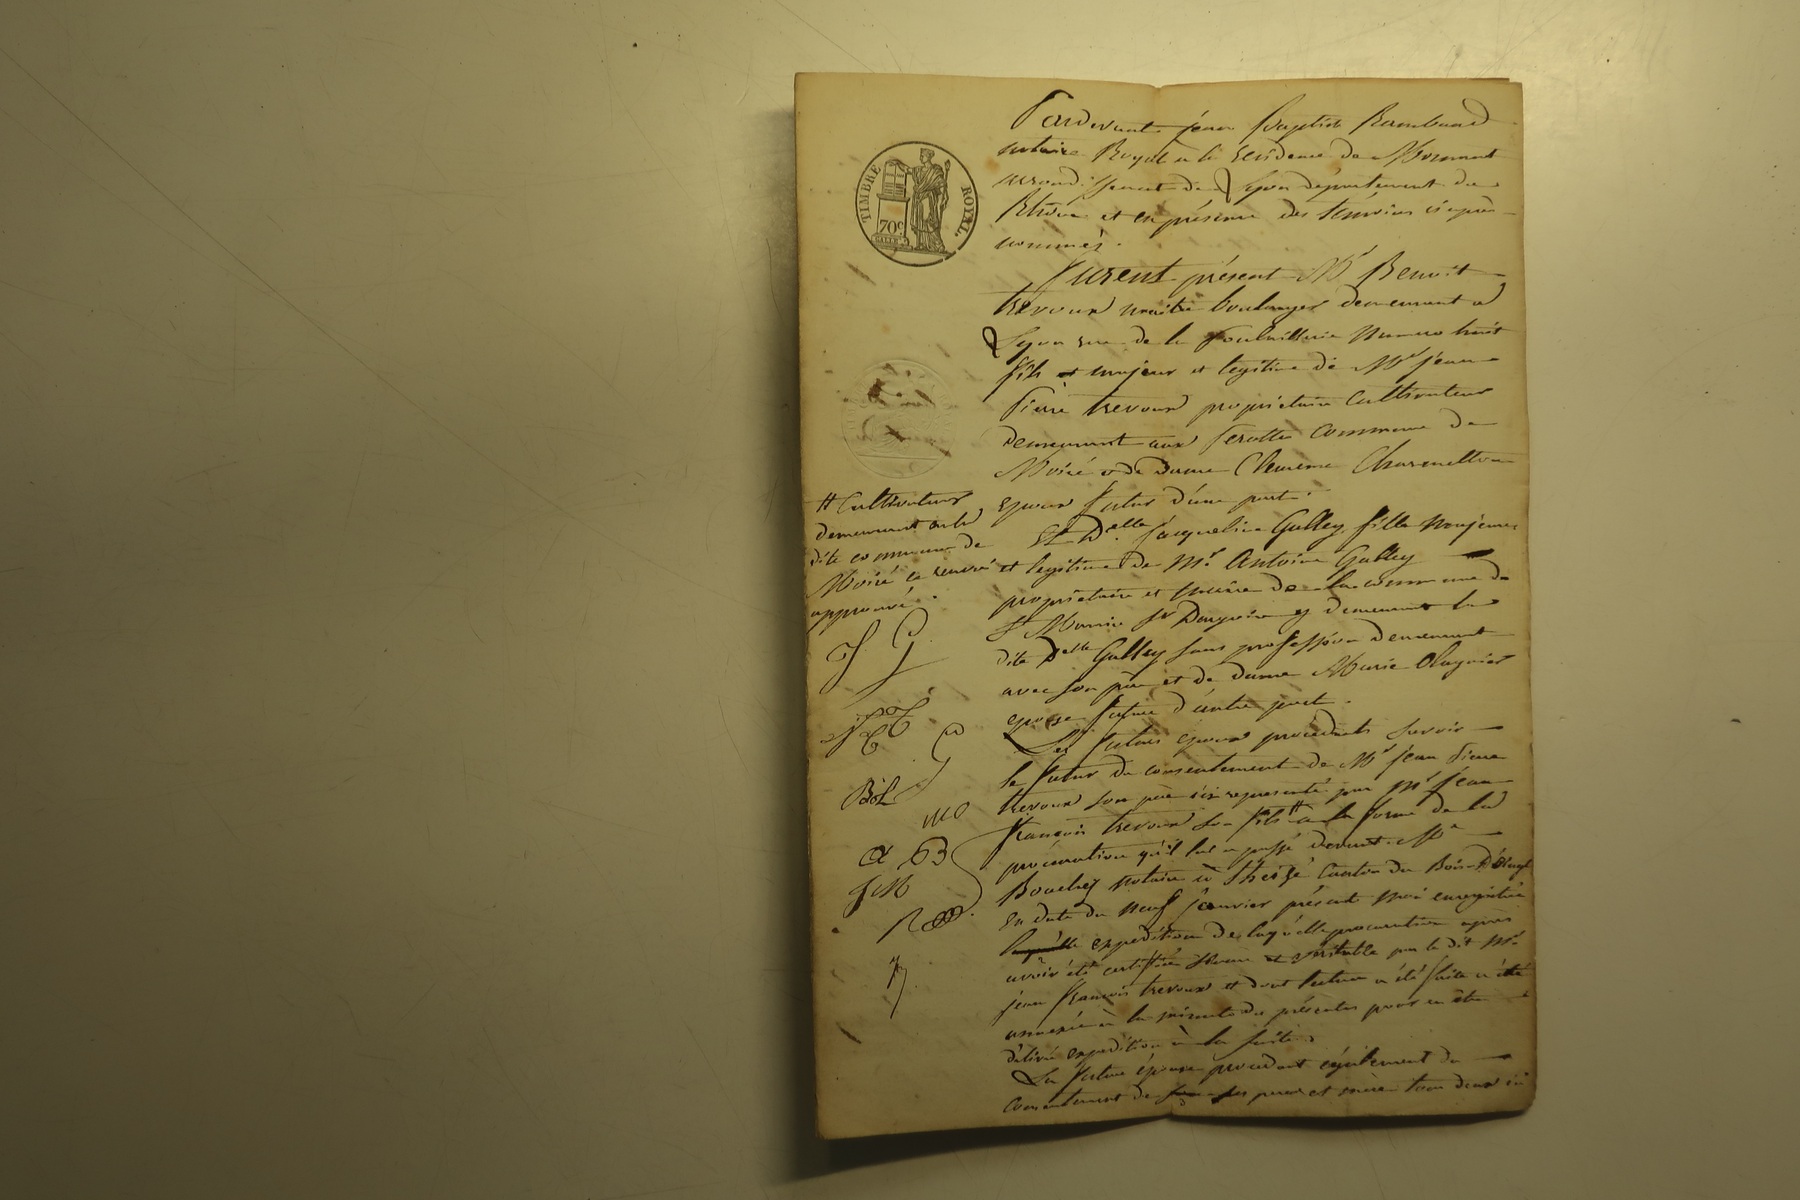 Pardevant jean Baptiste Rambaud
notaire Royal à la résidence de Mornant
arrondissement de Lyon département du
Rhône et en présence des témoins ci après
nommés.
TIMBRE ROYAL.
70c
furent présent Mr Benoit
trevoux maitre boulanger demeurant a
Lyon rue de la Poulaillerie Numero huit
fils et majeur et legitime de Mr jean
Pierre trevoux proprietaire Cultivateur
demeurant aux commune de
Moiré & de dame Clemence
epoux futur d'une part.
Et Delle jacqueline Gulley fille Majeure
et legitime de Mr Antoine Gulley
propriétaire et maire de la commune de
St demeurant la
dite Delle Gulley sans profession demeurant
avec son père et de dame Marie Olagnier
epouse future d'autre part.
Les futurs époux procédants savoir
le futur du consentement de Mr jean Pierre
trevoux son père ici representé par Mr jean
françois trevoux son fils # a la forme de la
procuration qu'il lui a passé devant Me
notaire à Theizé Canton du Bois D'Oingt
en date du neuf janvier présent mois enregistrée
laquelle expédition de laquelle procuration apres
avoir été certifiée et véritable par le dit Mr
jean françois trevoux et dont lecture a été faite a été
annexée à la minute des présentes pour en être
délivré expedition à la suite
La future épouse procedant également du
consentement de ses père et mère tous deux ici
# Cultivateur
demeurant en la
dite commune de
Moiré ce renvoi
approuvé.
J G
JFT
G
BoL
MO
a B
JM